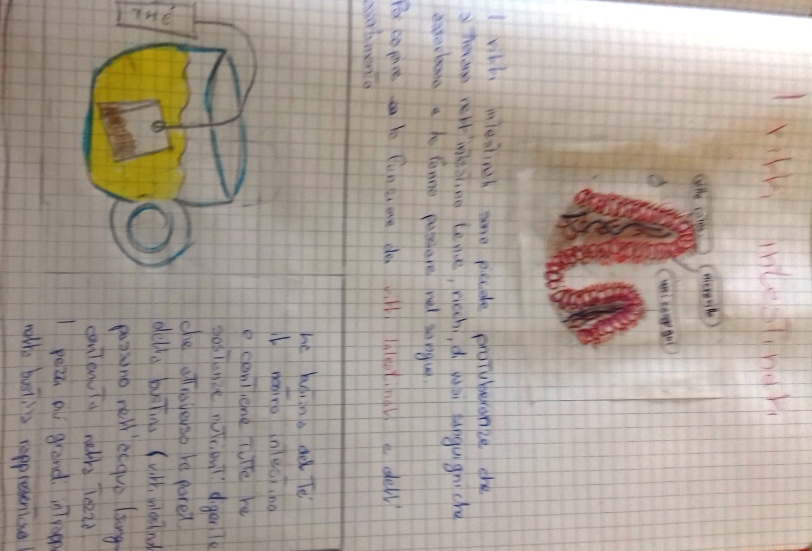 I villi intestinali
microvilli
vasi sanguigni
I villi intestinali sono piccole protuberanze che
si trovano nell'intestino tenue, ricchi di vasi sanguigni che
assorbono e lo fanno passare nel sangue
Per capire la funzione dei villi intestinali e dell'
assorbimento
THÈ
la bustina del Tè
il nostro intestino
e contiene tutte le
sostanze nutrienti digerite
che attraverso le pareti
della bustina (villi intestinal
passano nell'acqua (sang
contenuta nella tazza
I pezzi più grandi intrapp
nella bustina rappresentano